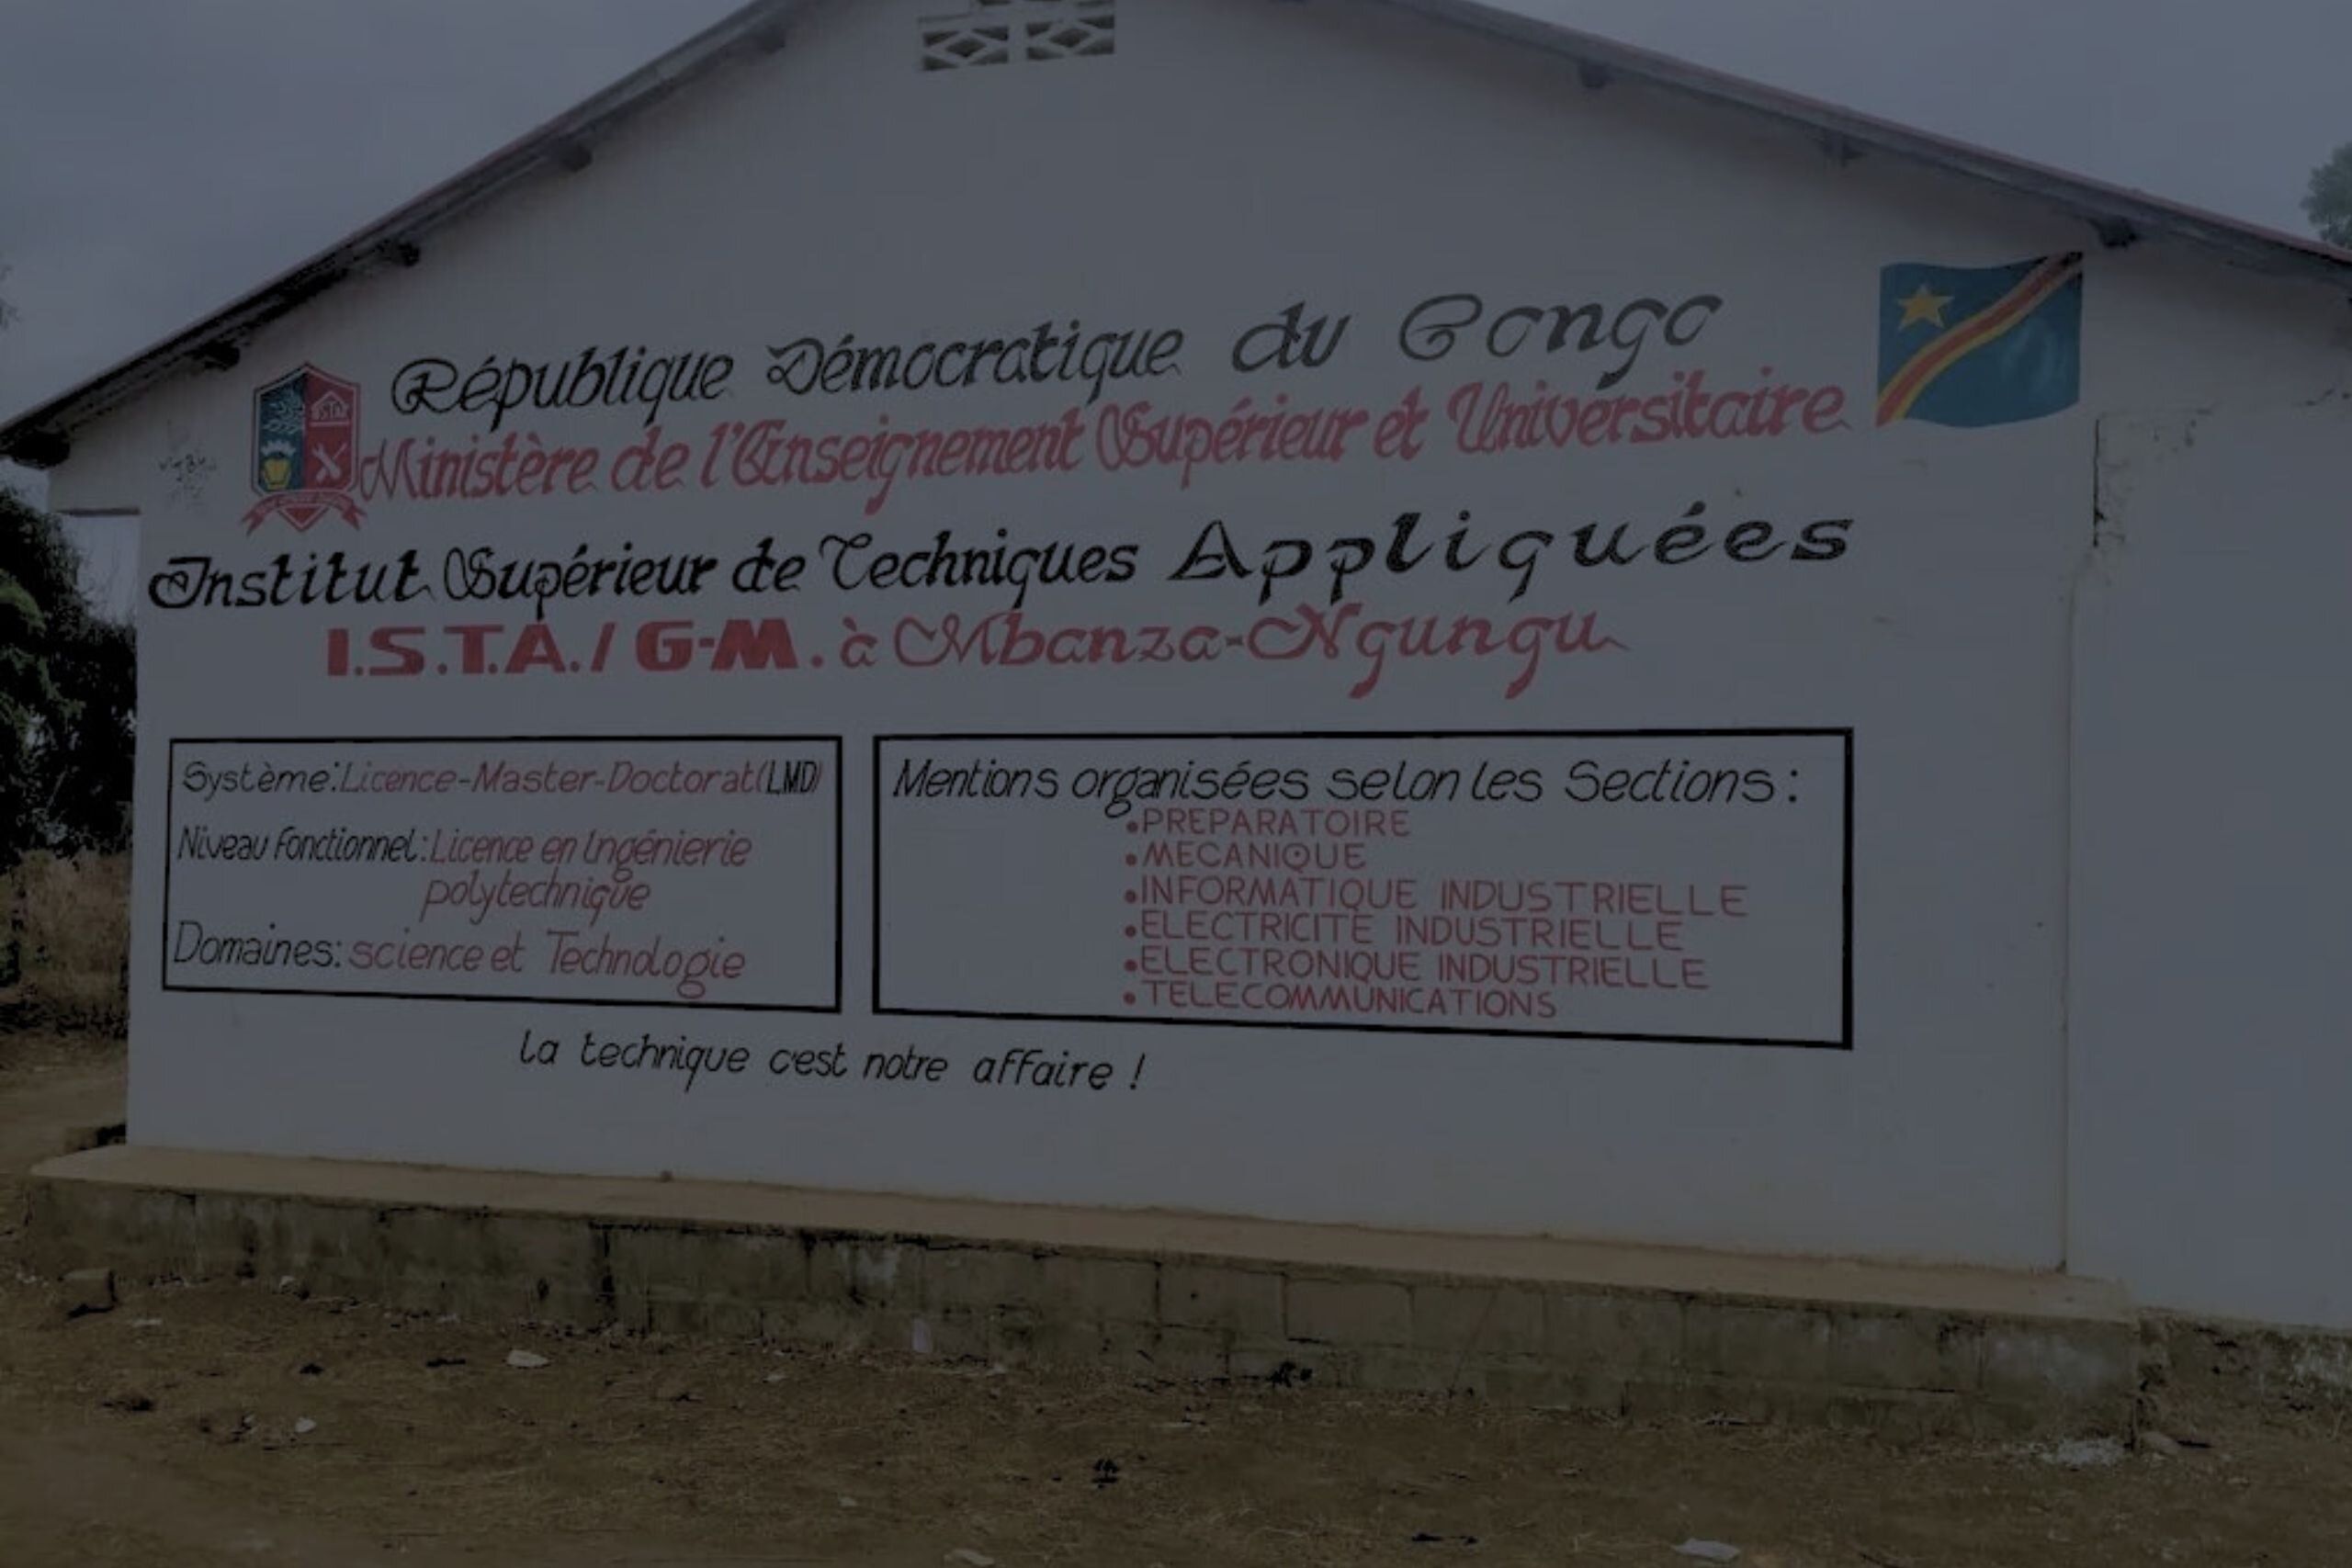 République Démocratique du Congo
Ministère de l'Enseignement Supérieur et Universitaire
ISTA
Institut Supérieur de Techniques Appliquées
I.S.T.A./G-M. à Mbanza-Ngungu
Système: Licence-Master-Doctorat (LMD)
Niveau fonctionnel: Licence en Ingénierie
polytechnique
Domaines: science et Technologie
Mentions organisées selon les Sections :
•PREPARATOIRE
•MECANIQUE
•INFORMATIQUE INDUSTRIELLE
•ELECTRICITE INDUSTRIELLE
•ELECTRONIQUE INDUSTRIELLE
•TELECOMMUNICATIONS
La technique c'est notre affaire !